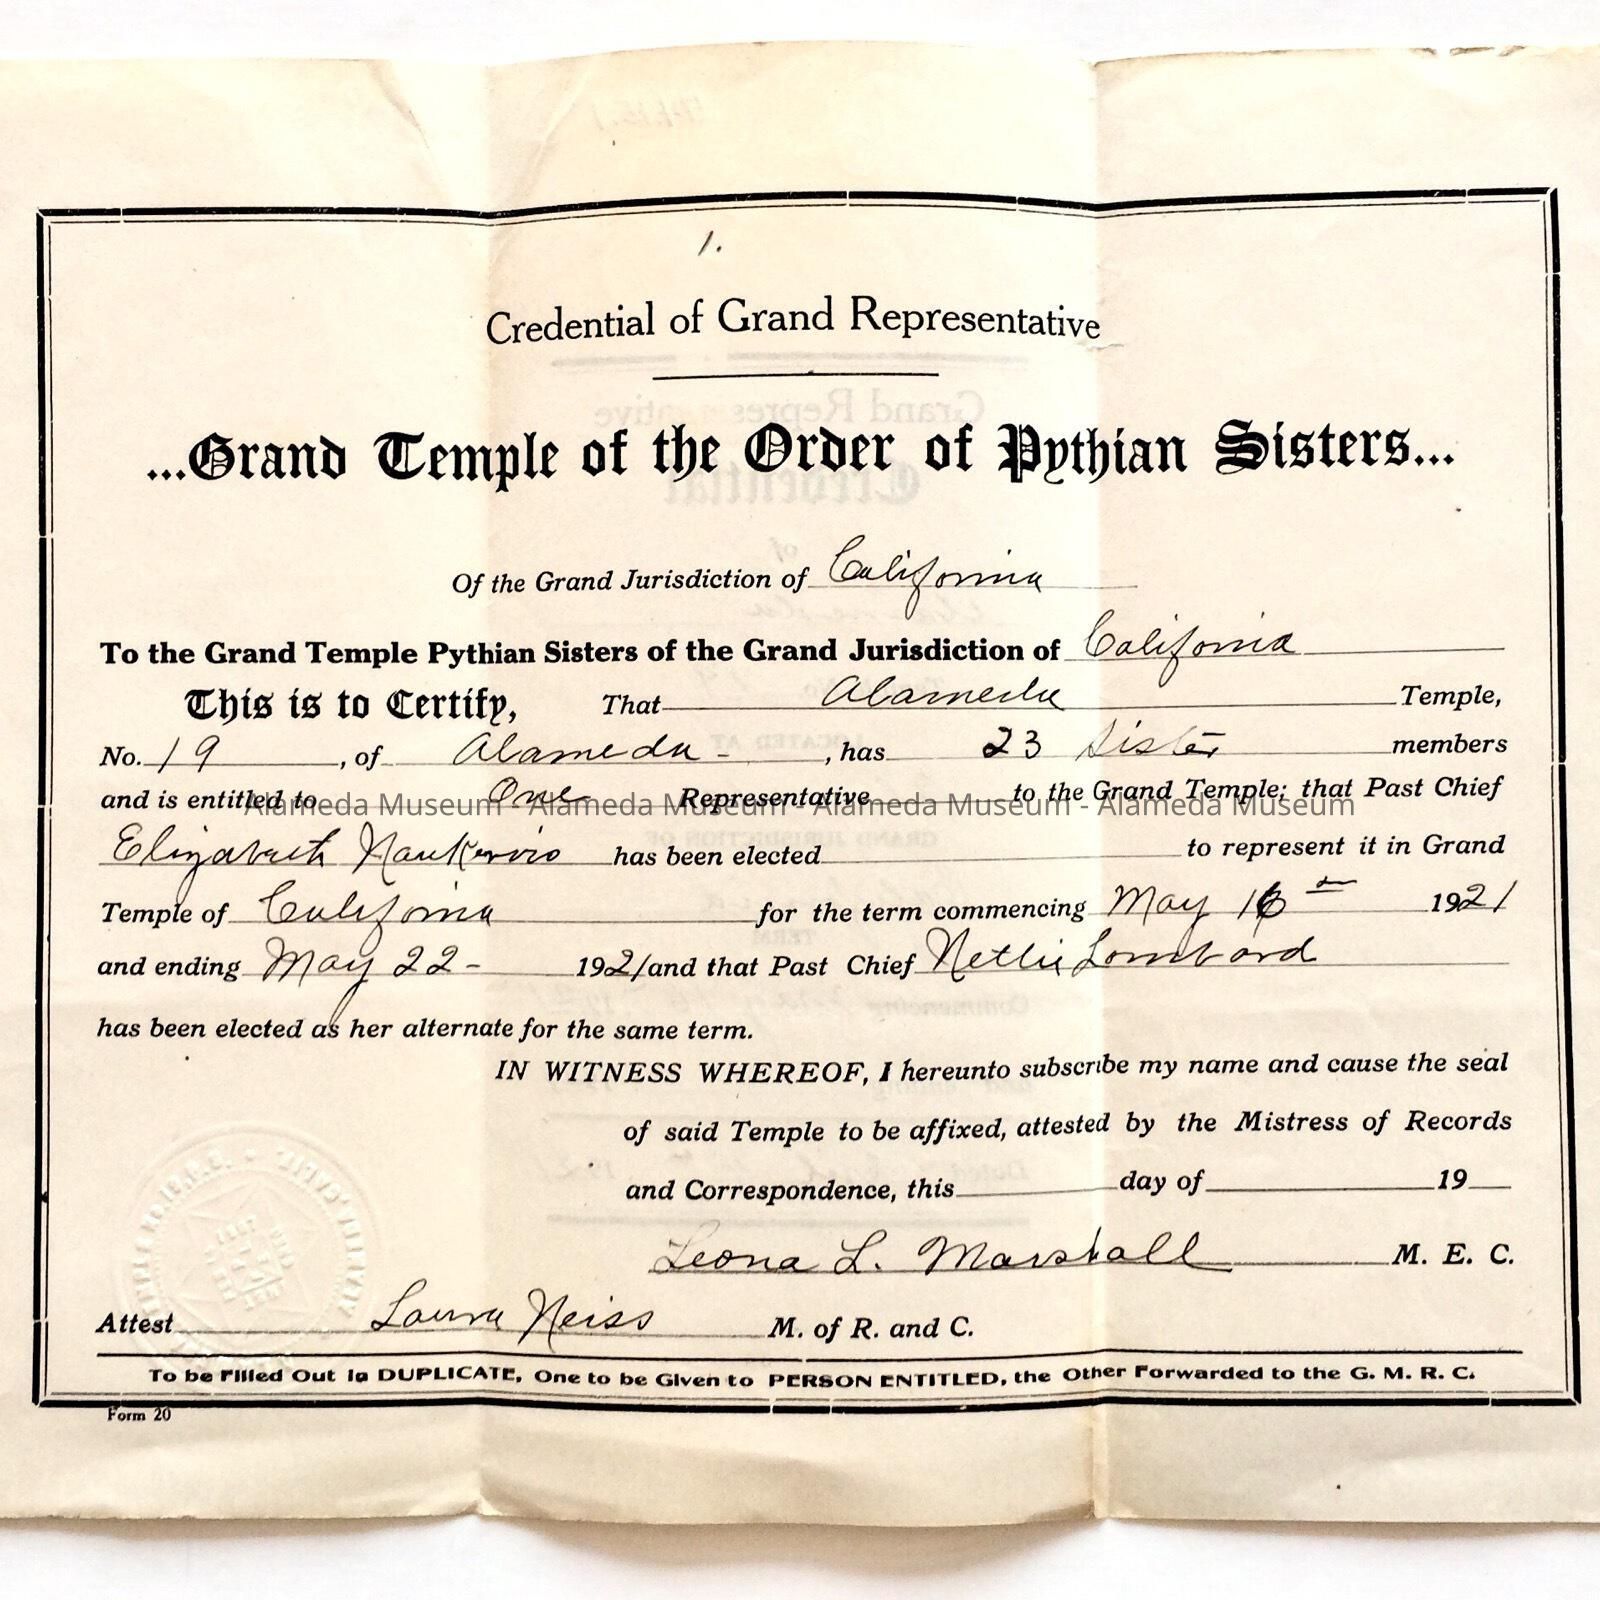 1.
Credential of Grand Representative
...Grand Temple of the Order of Pythian Sisters...
Of the Grand Jurisdiction of California
To the Grand Temple Pythian Sisters of the Grand Jurisdiction of California
This is to Certify, That Alameda Temple,
No. 19, of Alameda -, has 23 Sister members
and is entitled to One Representative to the Grand Temple; that Past Chief
Alameda Museum - Alameda Museum - Alameda Museum - Alameda Museum
Elizabeth has been elected to represent it in Grand
Temple of California for the term commencing May 1921
and ending May 22 - 1921 and that Past Chief Nettie Lombard
has been elected as her alternate for the same term.
IN WITNESS WHEREOF, I hereunto subscribe my name and cause the seal
of said Temple to be affixed, attested by the Mistress of Records
and Correspondence, this day of 19
Leona L. Marshall M. E. C.
Attest Laura Neiss M. of R. and C.
To be Filled Out in DUPLICATE, One to be Given to PERSON ENTITLED, the Other Forwarded to the G. M. R. C.
Form 20